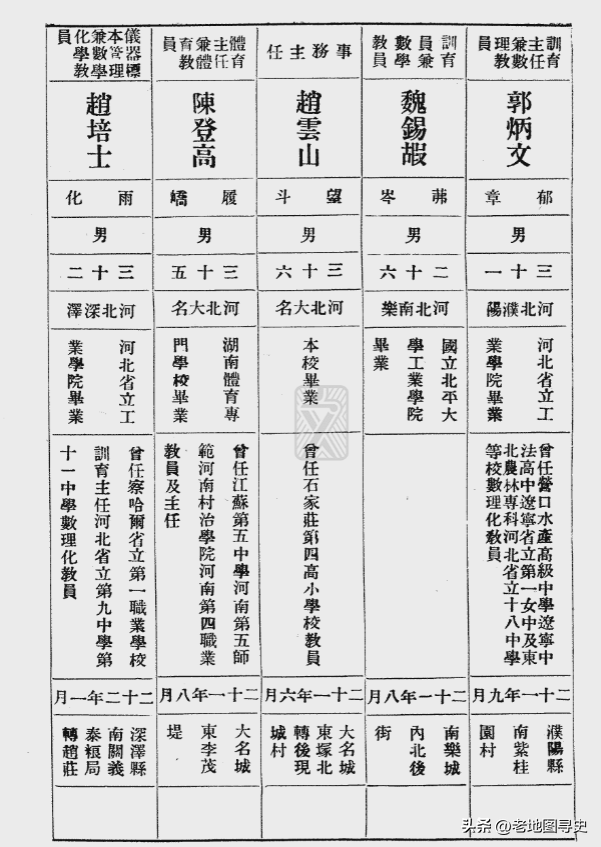 訓育主任兼數理教員
郭炳文
郁章
男
三十一
河北濮陽
河北省立工
業學院畢業
曾任營口水產高級中學遼寧中
法高中遼寧省立第一女中及東
北農林專科河北省立十八中學
等校數理化教員
二十一年九月
濮陽縣
南紫桂
園村
訓育員兼數學教員
魏錫嘏
茀岑
男
二十六
河北南樂
國立北平大
學工業學院
畢業
二十一年八月
南樂城
內北後
街
事務主任
趙雲山
望斗
男
三十六
河北大名
本校畢業
曾任石家莊第四高小學校教員
二十一年六月
大名城
東塚北
轉後現
城村
體育主任兼體育教員
陳登高
履嶠
男
三十五
河北大名
湖南體育專
門學校畢業
曾任江蘇第五中學河南第五師
範河南村治學院河南第四職業
教員及主任
二十一年八月
大名城
東李茂
堤
儀器標本管理兼數學化學教員
趙培士
雨化
男
三十二
河北深澤
河北省立工
業學院畢業
曾任察哈爾省立第一職業學校
訓育主任河北省立第九中學第
十一中學數理化教員
二十二年一月
深澤縣
南關義
泰粮局
轉趙莊
头条 @老地图寻史